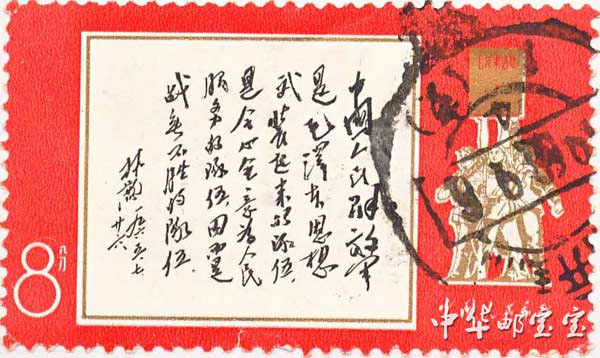 中國人民解放军
是毛泽东思想
武装起来的队伍，
是全心全意为人民
服务的队伍，因而是
战无不胜的队伍。
林彪 一九六五、七、廿六
8 八分
中华邮宝宝